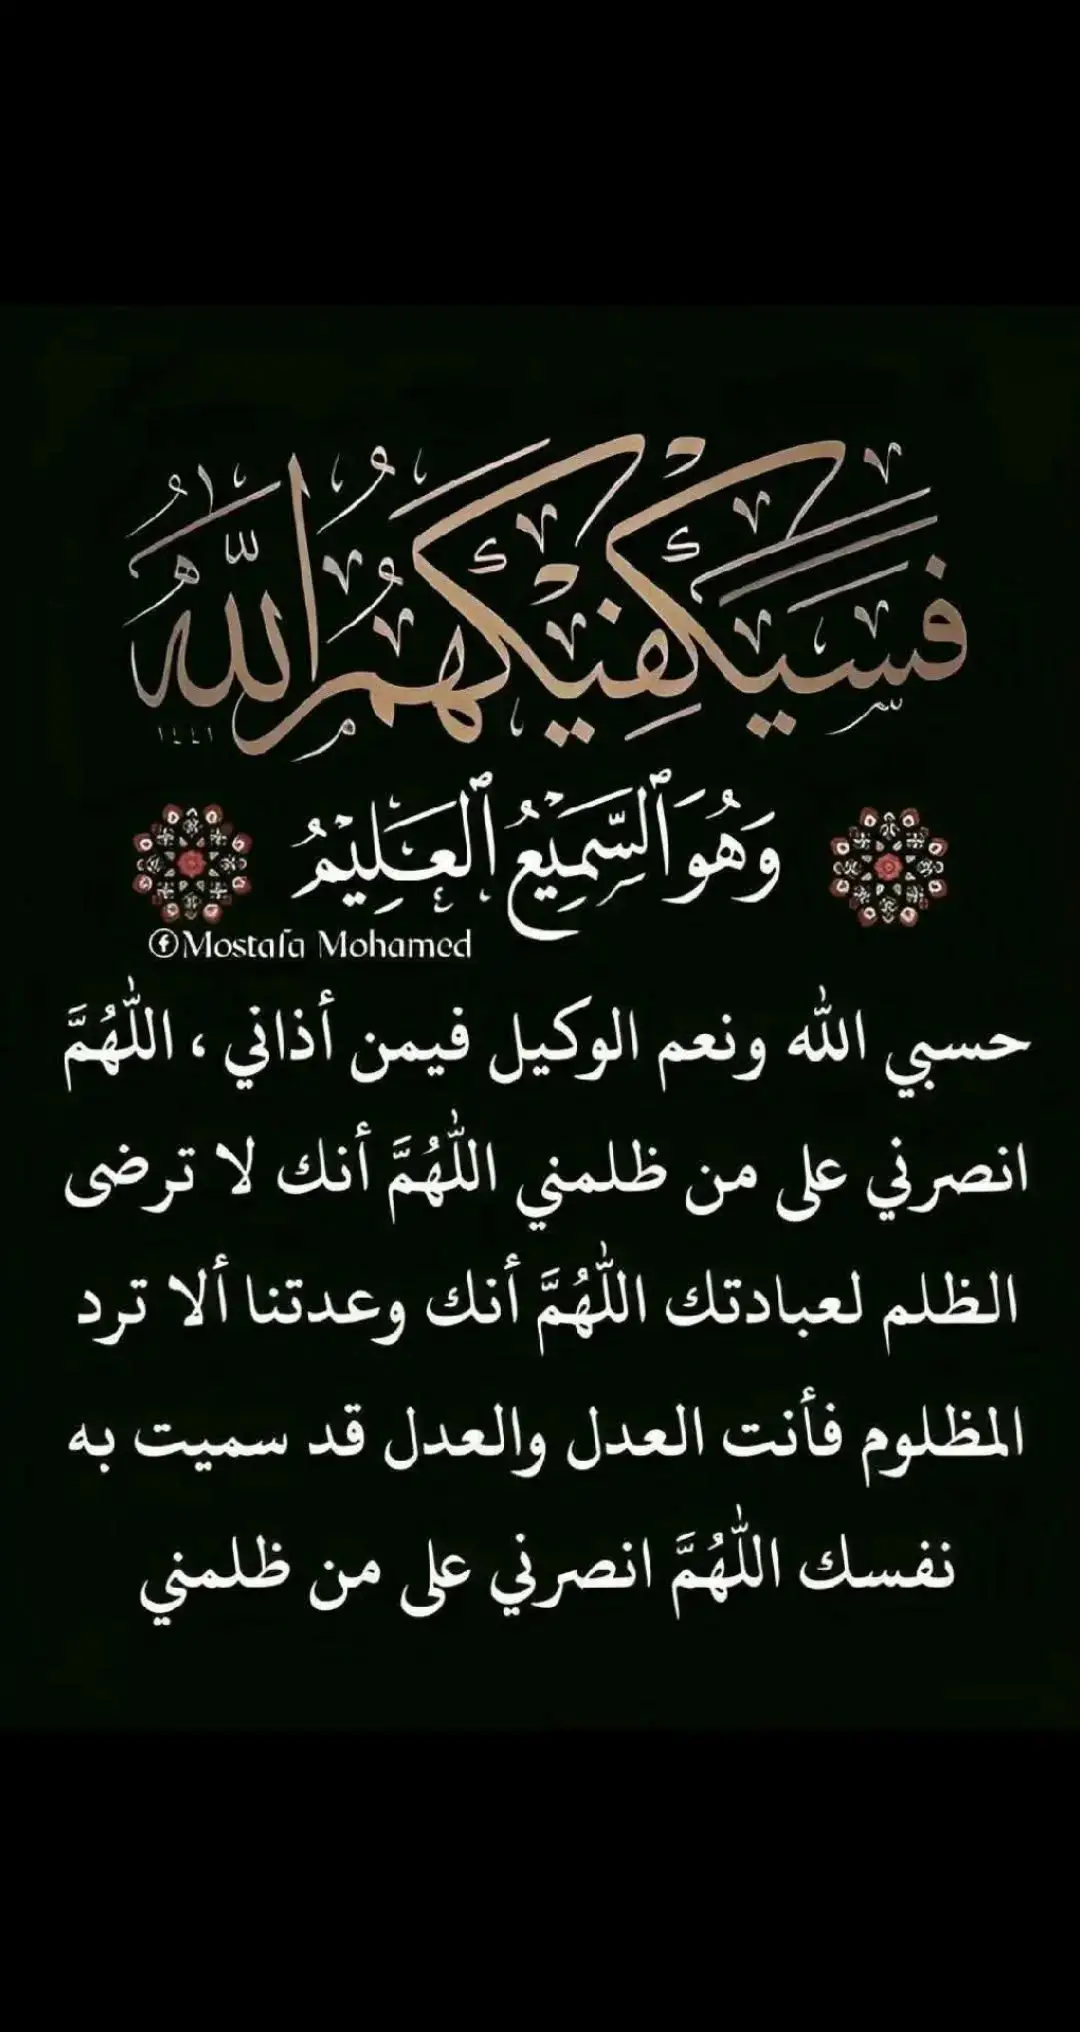 فَسَيَكْفِيكَهُمُ اللَّهُ
١٤٤١
وَهُوَ ٱلسَّمِيعُ ٱلْعَلِيمُ
Mostafa Mohamed
حسبي الله ونعم الوكيل فيمن أذاني ، اللَّهُمَّ
انصرني على من ظلمني اللَّهُمَّ أنك لا ترضى
الظلم لعبادتك اللَّهُمَّ أنك وعدتنا ألا ترد
المظلوم فأنت العدل والعدل قد سميت به
نفسك اللَّهُمَّ انصرني على من ظلمني